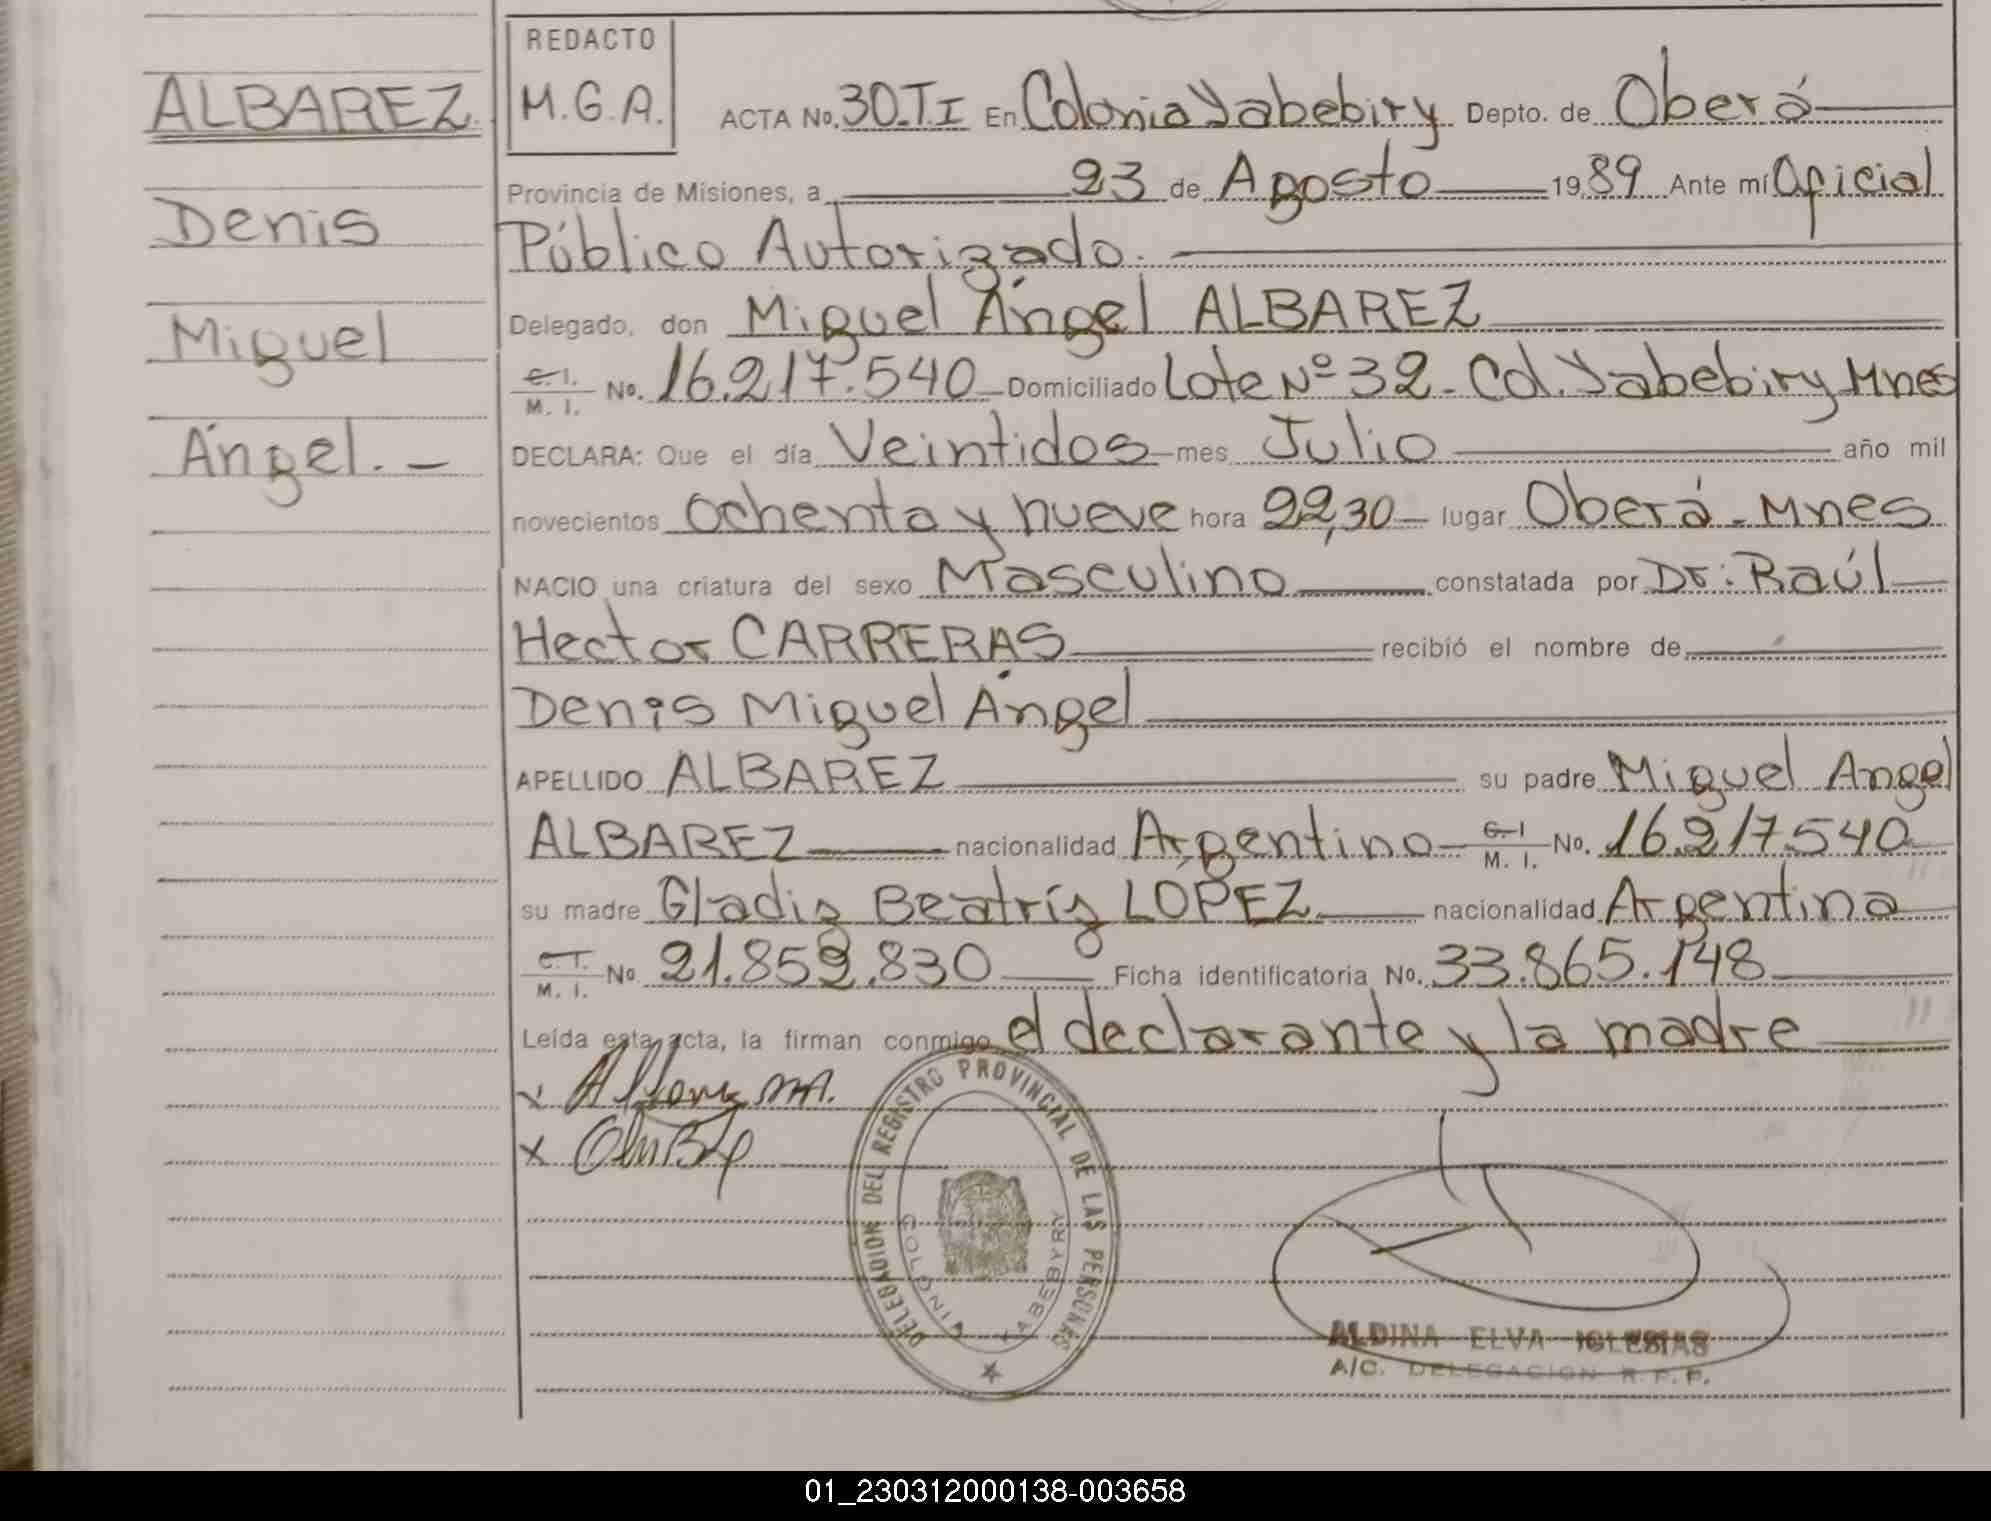 REDACTO
M.G.A.
ALBAREZ
Denis
Miguel
Ángel. -
ACTA No. 30.T.I En Colonia Yabebiry Depto. de Oberá
Provincia de Misiones, a 23 de Agosto 1989 Ante mí Oficial
Público Autorizado.
Delegado, don Miguel Ángel ALBAREZ
C. I. M. I. No. 16.217.540 Domiciliado Lote Nº 32 - Col. Yabebiry Mnes
DECLARA: Que el día Veintidos mes Julio año mil
novecientos ochenta y nueve hora 22,30 lugar Oberá - Mnes
NACIO una criatura del sexo Masculino constatada por Dr: Raúl
Hector CARRERAS recibió el nombre de
Denis Miguel Ángel
APELLIDO ALBAREZ su padre Miguel Angel
ALBAREZ nacionalidad Argentino C. I M. I. No. 16.217.540
su madre Gladis Beatríz LOPEZ nacionalidad Argentina
C. I. M. I. No 21.859.830 Ficha identificatoria No. 33.865.148
Leída esta acta, la firman conmigo el declarante y la madre
x
x
DELEGACION DEL REGISTRO PROVINCIAL DE LAS PERSONAS
COLONIA YABEBYRY
ALDINA ELVA IGLESIAS
A/C. DELEGACION R. P. P.
01_230312000138-003658